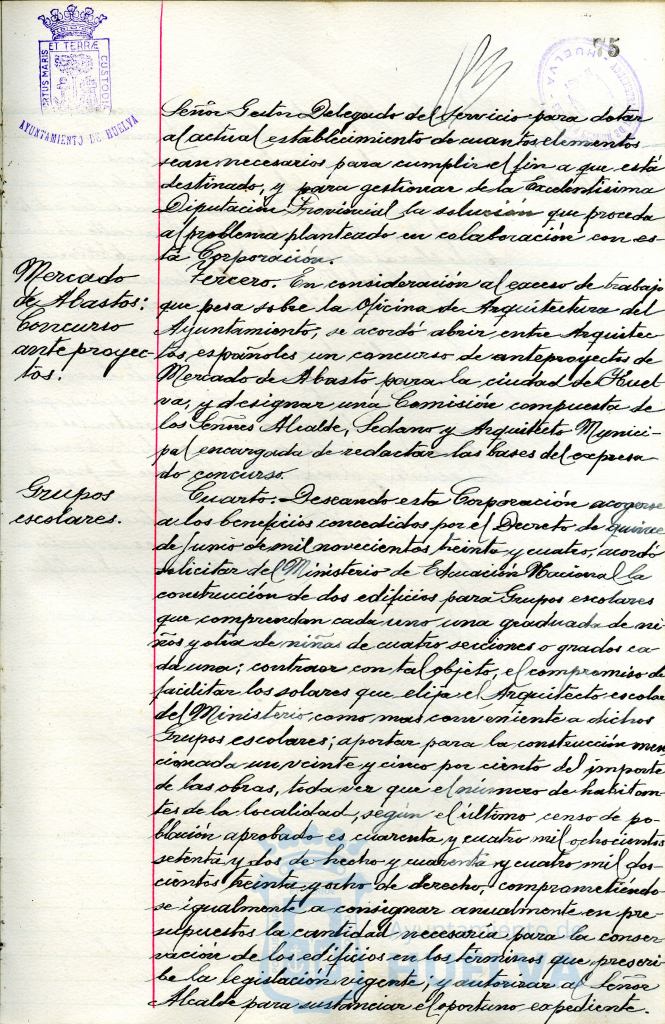 65
ET TERRÆ
PORTUS MARIS
CUSTODIA
AYUNTAMIENTO DE HUELVA
HUELVA
Señor Gestor Delegado del Servicio para dotar
al actual establecimiento de cuantos elementos
sean necesarios para cumplir el fin a que está
destinado, y para gestionar de la Excelentísima
Diputación Provincial la solución que proceda
al problema planteado en colaboración con es-
ta Corporación.
Mercado
de Abastos:
Concurso
anteproyec-
tos.
Tercero. En consideración al exceso de trabajo
que pesa sobre la Oficina de Arquitectura del
Ayuntamiento, se acordó abrir entre Arquitec-
tos españoles un concurso de anteproyectos de
Mercado de Abasto para la ciudad de Huel-
va, y designar una Comisión compuesta de
los Señores Alcalde, Sedano y Arquitecto Munici-
pal encargada de redactar las bases del expresa
do concurso.
Grupos
escolares.
Cuarto. Deseando esta Corporación acogerse
a los beneficios concedidos por el Decreto de quince
de Junio de mil novecientos treinta y cuatro, acordó
solicitar del Ministerio de Educación Nacional la
construcción de dos edificios para Grupos escolares
que comprendan cada uno, una graduada de ni-
ños y otra de niñas de cuatro secciones o grados ca-
da una; contraer con tal objeto, el compromiso de
facilitar los solares que elija el Arquitecto escolar
del Ministerio, como mas conveniente a dichos
Grupos escolares; aportar para la construcción men
cionada un veinte y cinco por ciento del importe
de las obras, toda vez que el número de habitan-
tes de la localidad, según el último censo de po-
blación aprobado es cuarenta y cuatro mil ochocientos
setenta y dos de hecho y cuarenta y cuatro mil dos-
cientos treinta y ocho de derecho, comprometiendo-
se igualmente a consignar anualmente en pre-
supuestos la cantidad necesaria para la conser-
vación de los edificios en los términos que prescri-
be la legislación vigente, y autorizar al Señor
Alcalde para sustanciar el oportuno expediente.
Ayuntamiento de
HUELVA